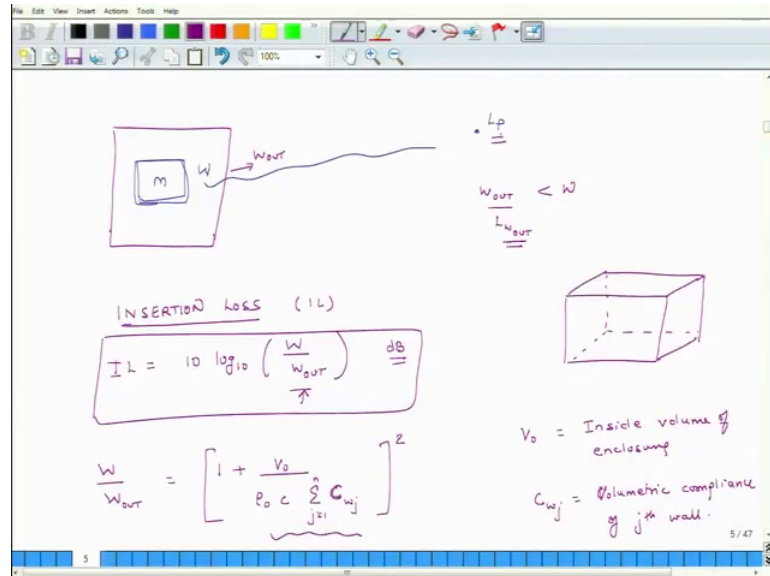 File Edit View Insert Actions Tools Help
B I
100%
m W WOUT
Lp
WOUT < W
LWOUT
INSERTION LOSS (IL)
IL = 10 log10 ( W / WOUT ) dB
W / WOUT = [ 1 + V0 / ρ0 c Σ j=1 n Cwj ] 2
V0 = Inside volume of
enclosung
Cwj = Volumetric compliance
of jth wall.
5 / 47
5